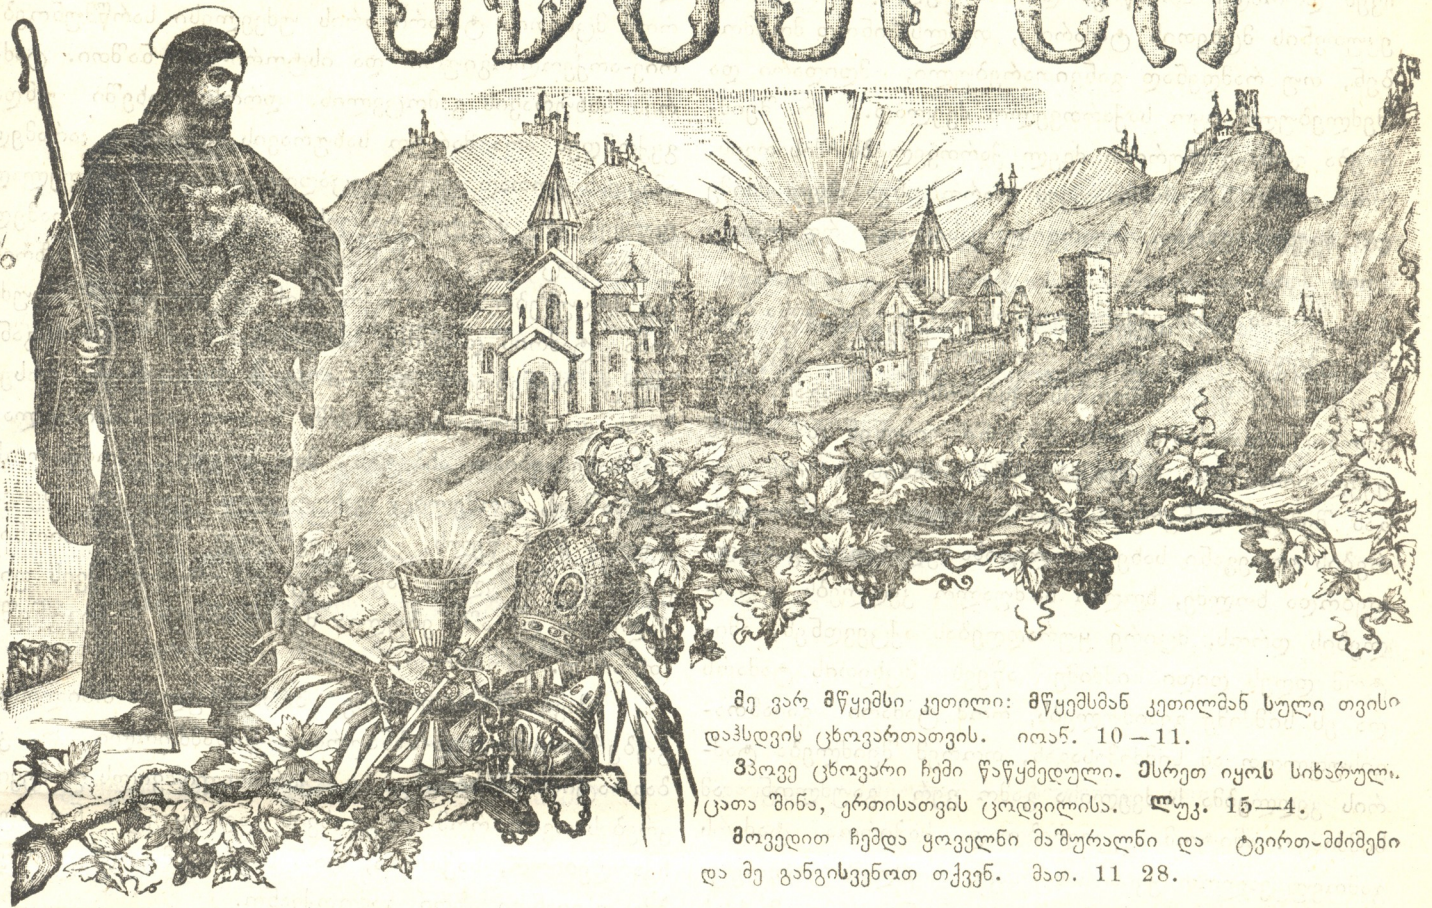 მე ვარ მწყემსი კეთილი: მწყემსმან კეთილმან სული თვისი
დაჰსდვის ცხოვართათვის. იოან. 10—11.
ვპოვე ცხოვარი ჩემი წაწყმედული. ესრეთ იყოს სიხარულ
ცათა შინა, ერთისათვის ცოდვილისა. ლუკ. 15—4.
მოვედით ჩემდა ყოველნი მაშურალნი და ტვირთ-მძიმენი
და მე განგისვენოთ თქვენ. მათ. 11 28.